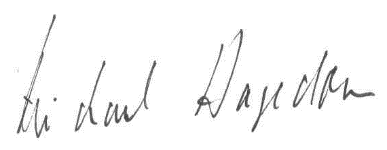 Michael Hagedorn